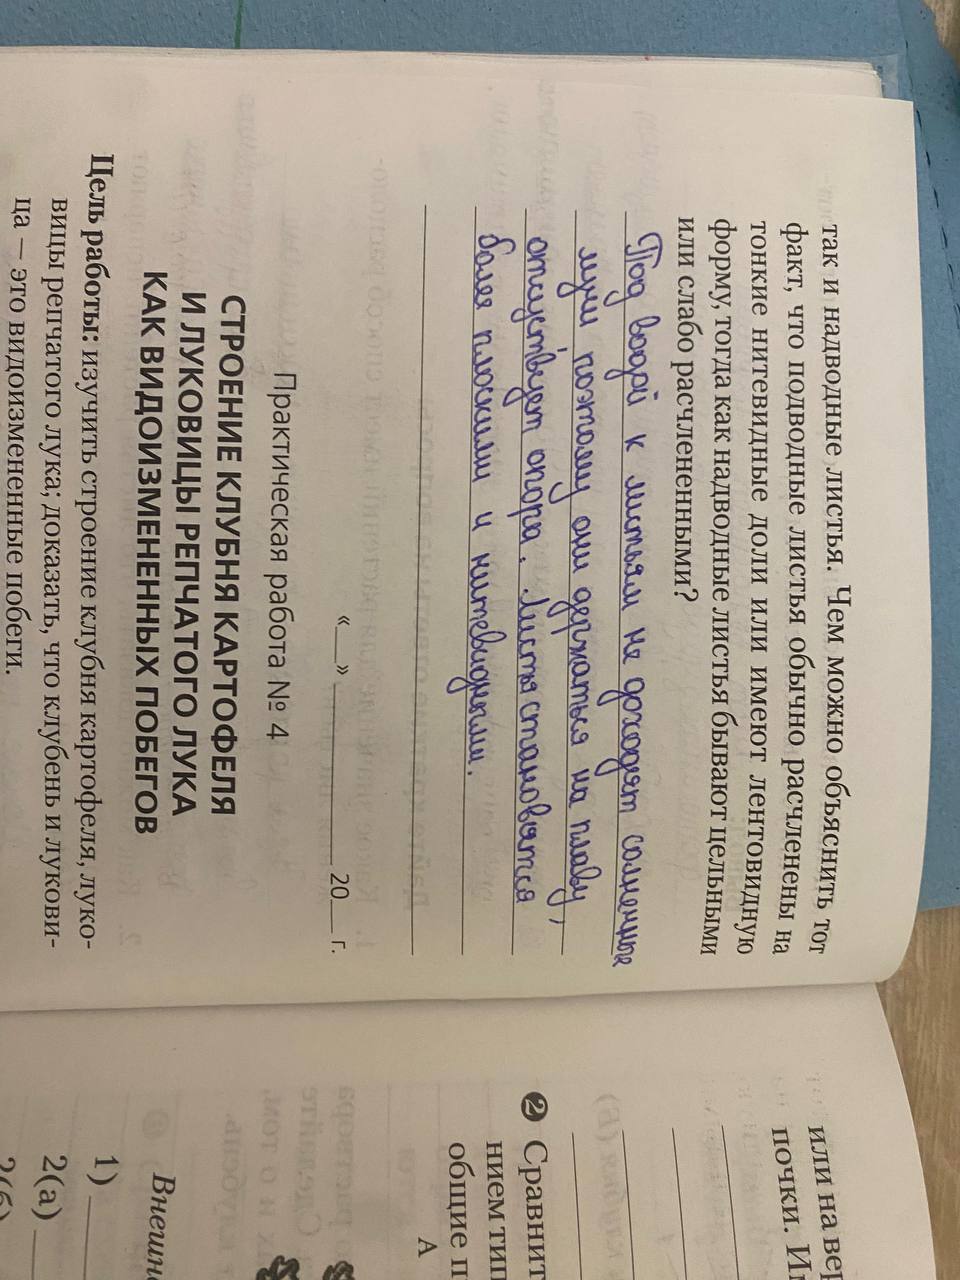 так и надводные листья. Чем можно объяснить тот
факт, что подводные листья обычно расчленены на
тонкие нитевидные доли или имеют лентовидную
форму, тогда как надводные листья бывают цельными
или слабо расчлененными?
Под водой к листьям не доходят солнечные
лучи поэтому они держаться на плаву,
отсуствует опора. Листья становятся
более плоскими и нитевидными.
«__» ____________ 20__ г.
Практическая работа № 4
СТРОЕНИЕ КЛУБНЯ КАРТОФЕЛЯ
И ЛУКОВИЦЫ РЕПЧАТОГО ЛУКА
КАК ВИДОИЗМЕНЕННЫХ ПОБЕГОВ
Цель работы: изучить строение клубня картофеля, луко-
вицы репчатого лука; доказать, что клубень и лукови-
ца — это видоизмененные побеги.
или на вер
почки. И
2 Сравнит
нием тип
общие п
А
Внешн
1)
2(а)
2(б)